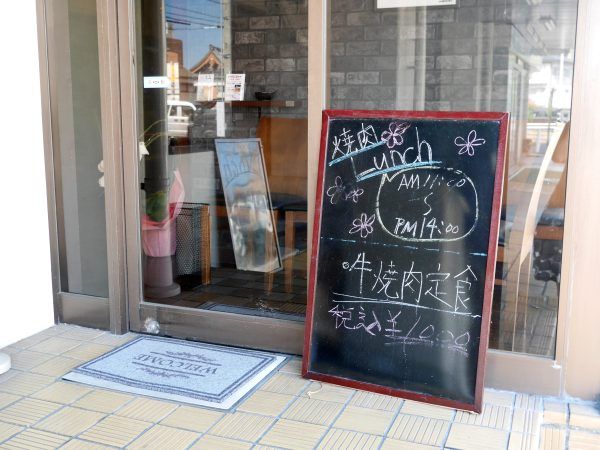 焼肉
Lunch
AM11:00
~
PM14:00
牛焼肉定食
税込¥1000
WELCOME